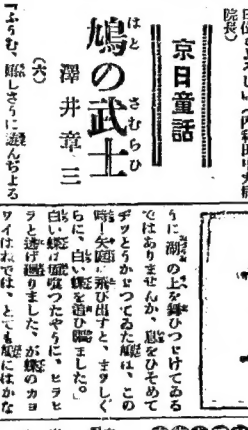 院長）
京日童話
鳩の武士
はと さむらひ
澤井章三
（六）
「ふうむ、嬉しさうに遊んぢよる
うに湖の上を舞ひつゞけてゐる
ではありませんか、息をひそめて
ヂッとうかゞつてゐた鳩は、この
時！矢庭に飛び出すと、まつしぐ
らに、白い蝶を追ひ廻ました。」
白い蝶は面喰つたやうに、ヒラヒ
ラと逃げ廻りました、が蝶のカヨ
ワイはねでは、とても鳩にはかな